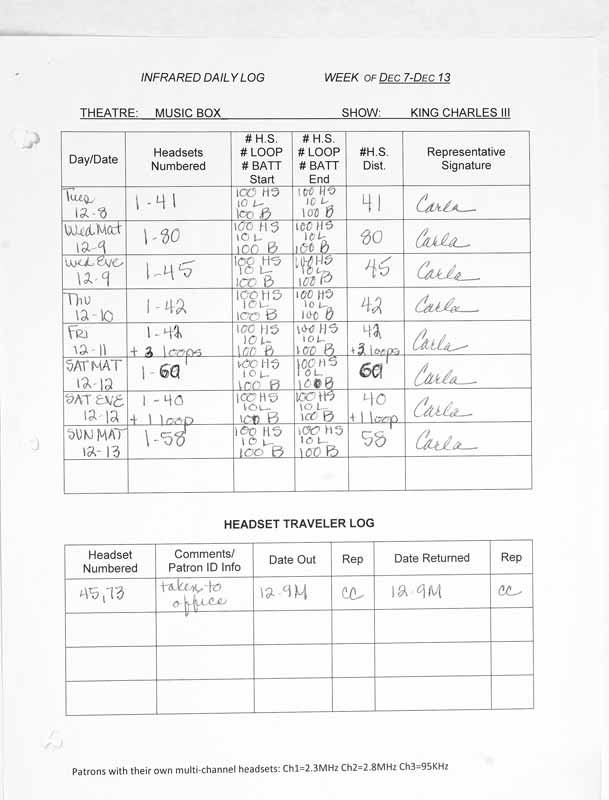 INFRARED DAILY LOG WEEK OF DEC 7-DEC 13
THEATRE: MUSIC BOX SHOW: KING CHARLES III
Day/Date Headsets Numbered # H.S. # LOOP # BATT Start # H.S. # LOOP # BATT End #H.S. Dist. Representative Signature
Tues 12-8 1-41 100 HS 10 L 100 B 100 HS 10 L 100 B 41 Carla
Wed Mat 12-9 1-80 100 HS 10 L 100 B 100 HS 10 L 100 B 80 Carla
Wed Eve 12-9 1-45 100 HS 10 L 100 B 100 HS 10 L 100 B 45 Carla
Thu 12-10 1-42 100 HS 10 L 100 B 100 HS 10 L 100 B 42 Carla
FRI 12-11 1-42 + 3 loops 100 HS 10 L 100 B 100 HS 10 L 100 B 42 +3 loops Carla
SAT MAT 12-12 1-60 100 HS 10 L 100 B 100 HS 10 L 100 B 60 Carla
SAT EVE 12-12 1-40 + 1 loop 100 HS 10 L 100 B 100 HS 10 L 100 B 40 +1 loop Carla
SUN MAT 12-13 1-58 100 HS 10 L 100 B 100 HS 10 L 100 B 58 Carla
HEADSET TRAVELER LOG
Headset Numbered Comments/ Patron ID Info Date Out Rep Date Returned Rep
45,73 taken to office 12-9M CC 12-9M CC
Patrons with their own multi-channel headsets: Ch1=2.3MHz Ch2=2.8MHz Ch3=95KHz